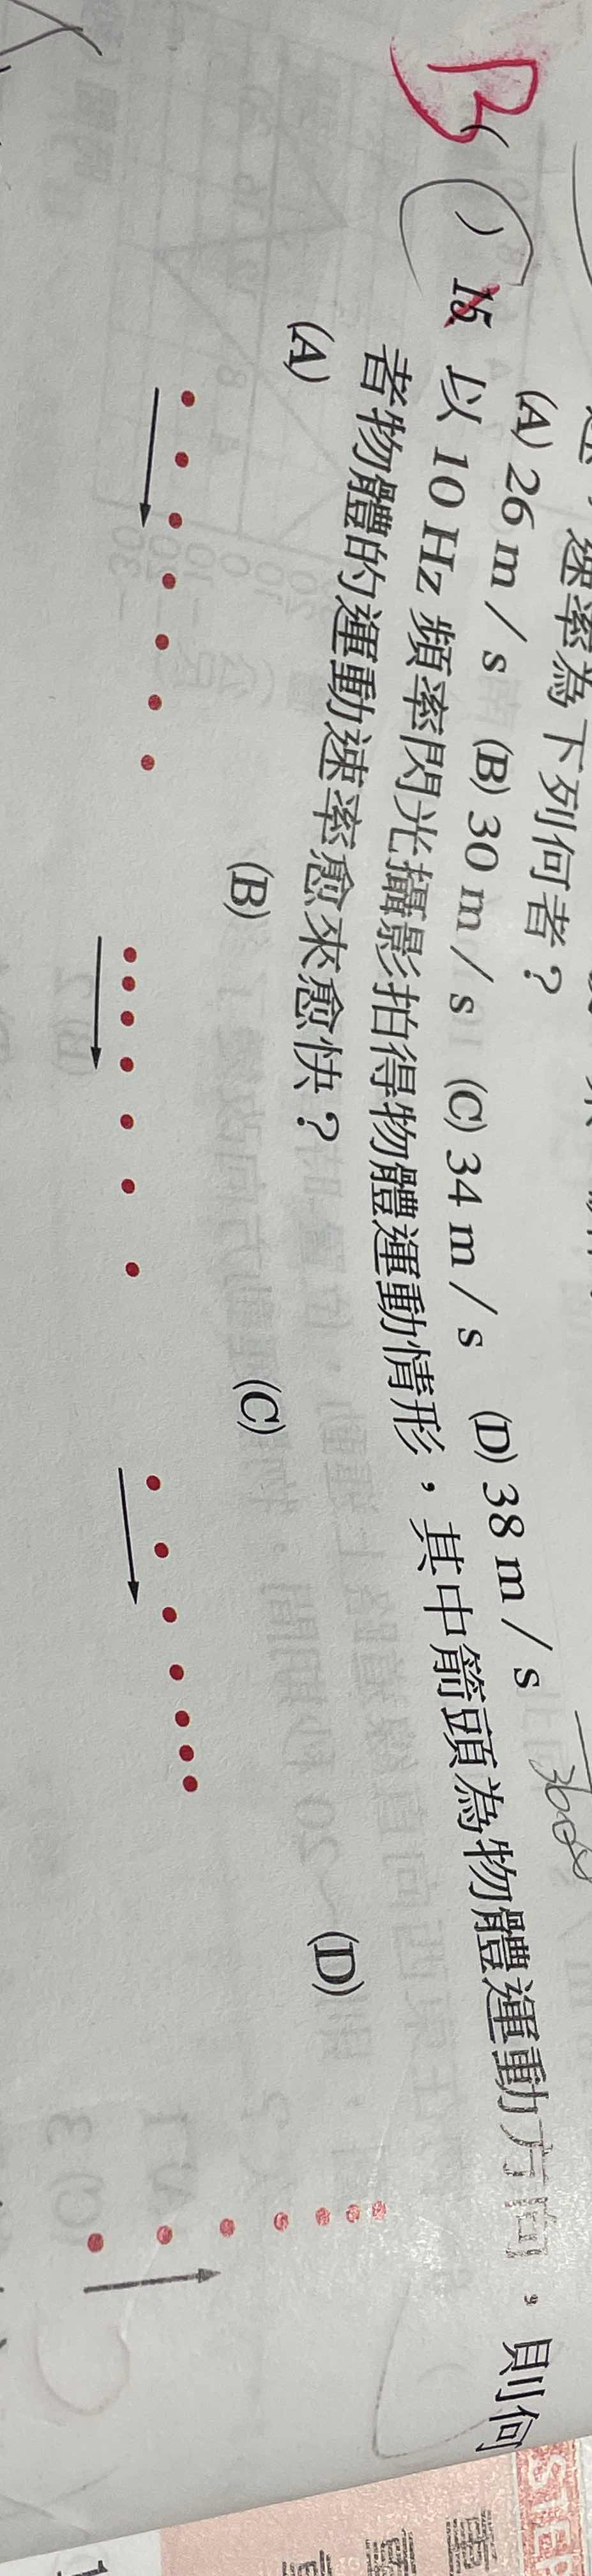 速率為下列何者？
(A) 26 m／s (B) 30 m／s (C) 34 m／s (D) 38 m／s
B
( ) 15. 以 10 Hz 頻率閃光攝影拍得物體運動情形，其中箭頭為物體運動方向，則何
者物體的運動速率愈來愈快？
(A) (B) (C) (D)